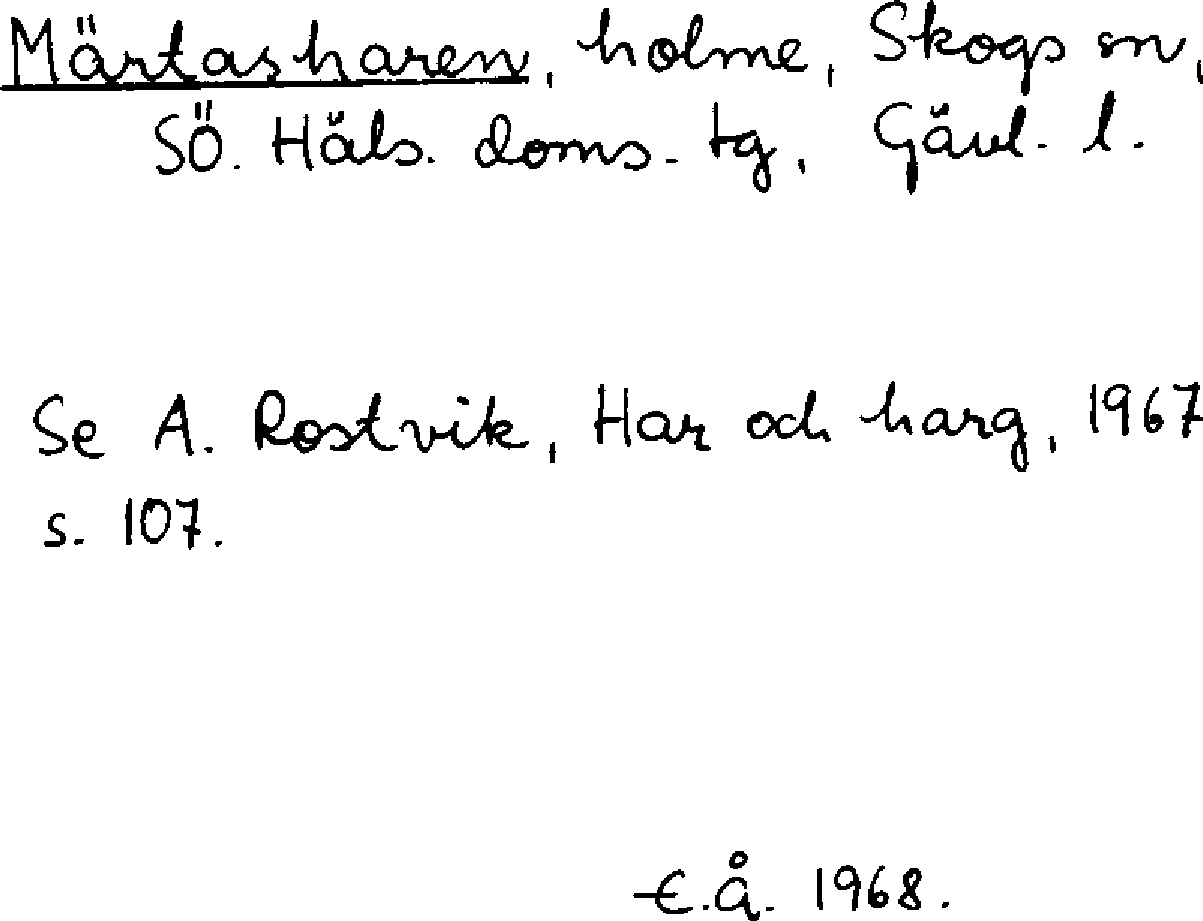 Märtasharen, holme, Skogs sn,
SÖ. Häls. doms. tg, Gävl. l.
Se A. Rostvik, Har och harg, 1967
s. 107.
E.Å. 1968.